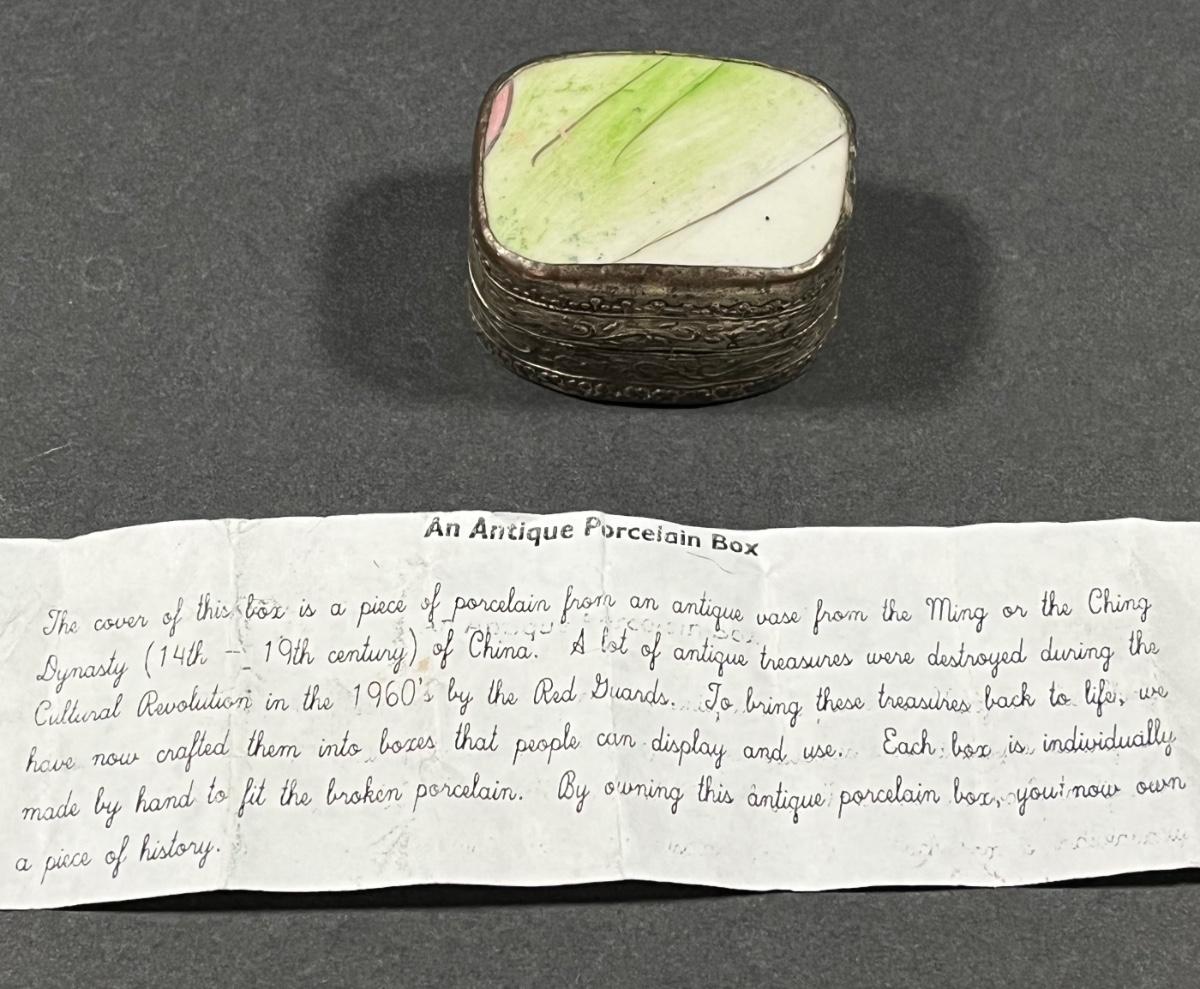 An Antique Porcelain Box
The cover of this box is a piece of porcelain from an antique vase from the Ming or the Ching
Dynasty (14th - 19th century) of China. A lot of antique treasures were destroyed during the
Cultural Revolution in the 1960's by the Red Guards. To bring these treasures back to life, we
have now crafted them into boxes that people can display and use. Each box is individually
made by hand to fit the broken porcelain. By owning this antique porcelain box, you now own
a piece of history.